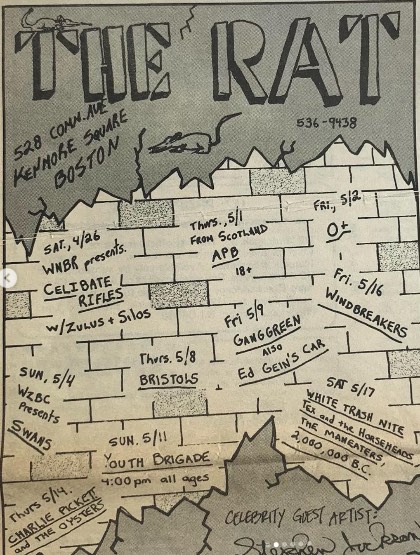 THE RAT
528 COMM. AVE
KENMORE SQUARE
BOSTON
536-9438
SAT, 4/26
WNBR presents.
CELIBATE
RIFLES
W/ZULUS + SILOS
Thurs., 5/1
FROM SCOTLAND
APB
18+
Fri., 5/2
O+
Fri. 5/16
WINDBREAKERS
Fri 5/9
GANGGREEN
ALSO
Ed GEIN'S CAR
Thurs. 5/8
BRISTOLS
SUN, 5/4
WZBC
Presents
SWANS
SUN. 5/11
YOUTH BRIGADE
4:00 pm all ages
SAT 5/17
WHITE TRASH NITE
TEX and the HORSEHEADS
THE MANEATERS,
2,000,000 B.C.
Thurs 5/14.
CHARLIE PICKET
and THE OYSTERS
CELEBRITY GUEST ARTIST: